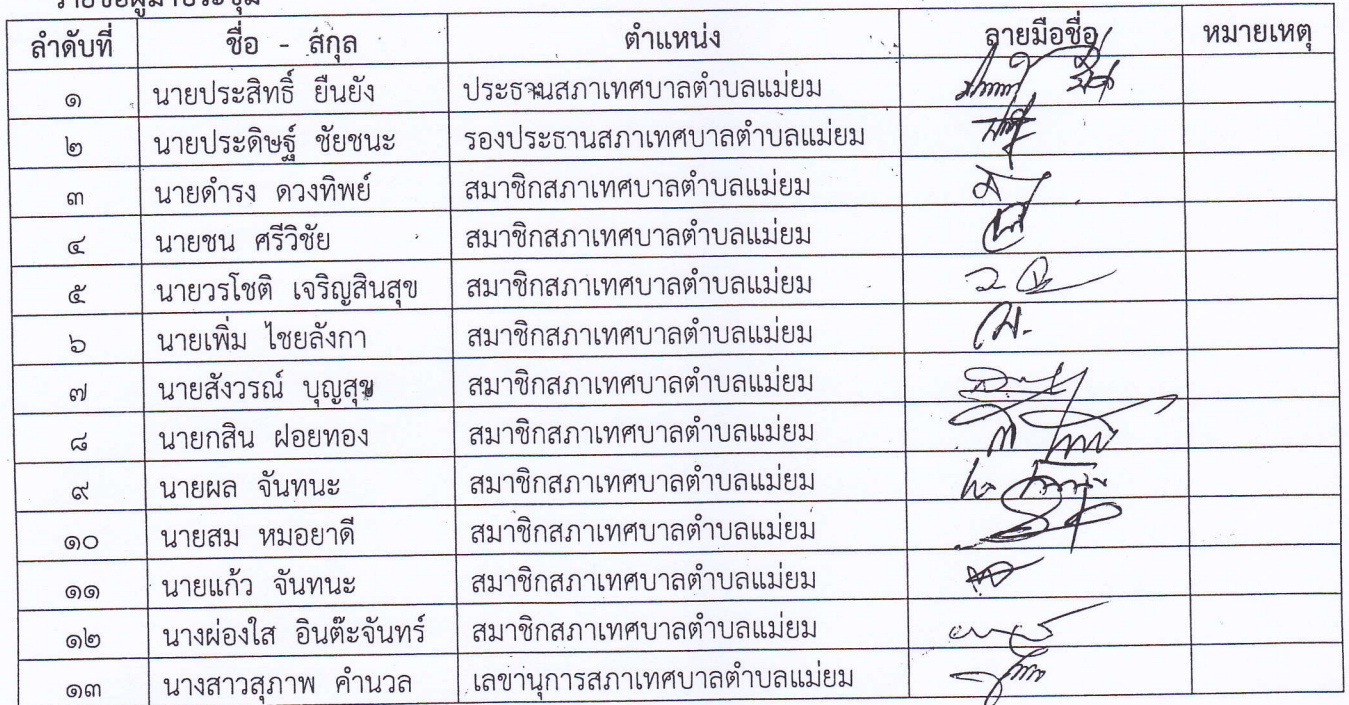 รายชื่อผู้มาประชุม
ลำดับที่ ชื่อ - สกุล ตำแหน่ง ลายมือชื่อ หมายเหตุ
๑ นายประสิทธิ์ ยืนยัง ประธานสภาเทศบาลตำบลแม่ยม
๒ นายประดิษฐ์ ชัยชนะ รองประธานสภาเทศบาลตำบลแม่ยม
๓ นายดำรง ดวงทิพย์ สมาชิกสภาเทศบาลตำบลแม่ยม
๔ นายชน ศรีวิชัย สมาชิกสภาเทศบาลตำบลแม่ยม
๕ นายวรโชติ เจริญสินสุข สมาชิกสภาเทศบาลตำบลแม่ยม
๖ นายเพิ่ม ไชยลังกา สมาชิกสภาเทศบาลตำบลแม่ยม
๗ นายสังวรณ์ บุญสุข สมาชิกสภาเทศบาลตำบลแม่ยม
๘ นายกสิน ฝอยทอง สมาชิกสภาเทศบาลตำบลแม่ยม
๙ นายผล จันทนะ สมาชิกสภาเทศบาลตำบลแม่ยม
๑๐ นายสม หมอยาดี สมาชิกสภาเทศบาลตำบลแม่ยม
๑๑ นายแก้ว จันทนะ สมาชิกสภาเทศบาลตำบลแม่ยม
๑๒ นางผ่องใส อินต๊ะจันทร์ สมาชิกสภาเทศบาลตำบลแม่ยม
๑๓ นางสาวสุภาพ คำนวล เลขานุการสภาเทศบาลตำบลแม่ยม